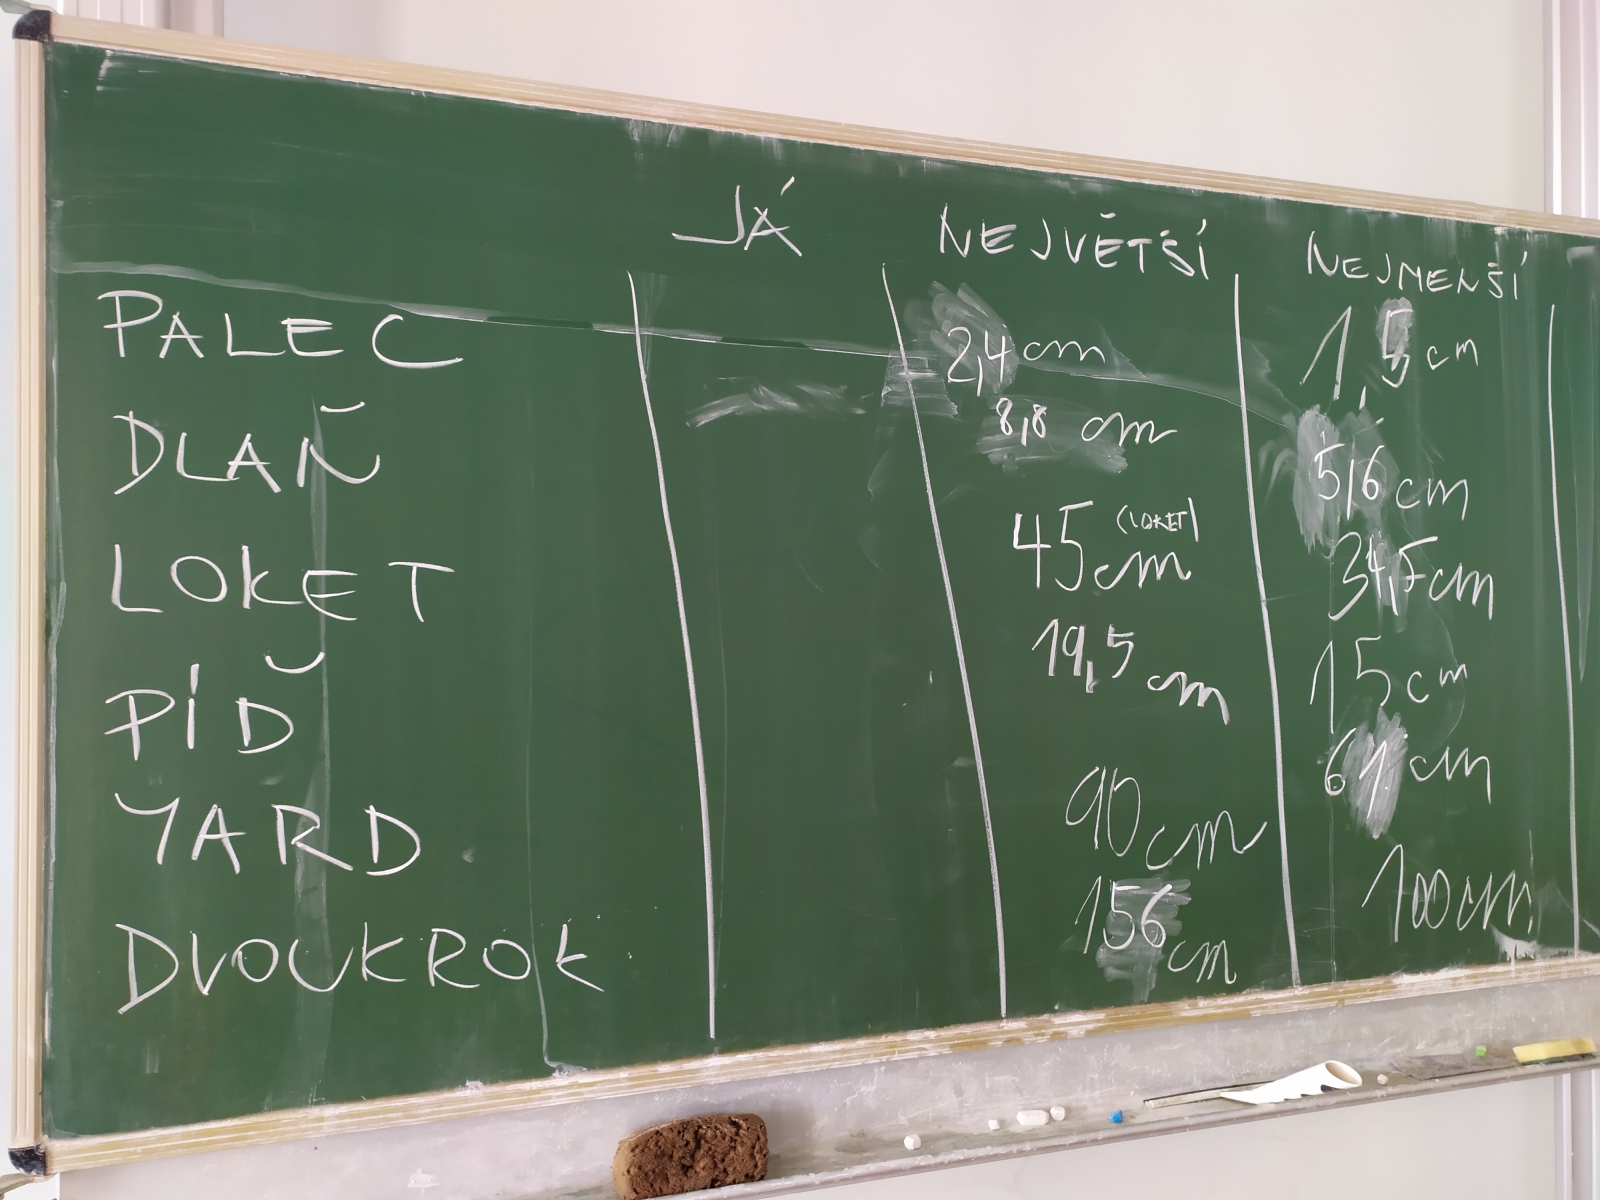 JÁ NEJVĚTŠÍ NEJMENŠÍ
PALEC 2,4 cm 1,5 cm
DLAŇ 8,8 cm 5,6 cm
LOKET 45 cm (LOKET) 34,5 cm
PÍĎ 19,5 cm 15 cm
YARD 90 cm 61 cm
DVOUKROK 156 cm 100 cm